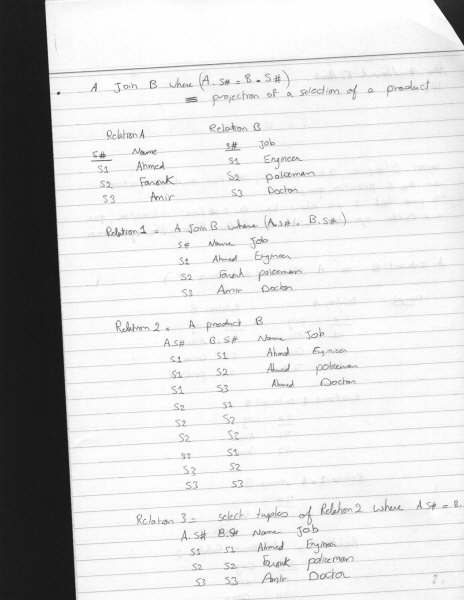 A Join B where (A.S# = B.S#)
≡ projection of a selection of a product
Relation A Relation B
S# Name S# Job
S1 Ahmed S1 Engineer
S2 Farouk S2 policeman
S3 Amir S3 Doctor
Relation 1 = A Join B where (A.S# = B.S#)
S# Name Job
S1 Ahmed Engineer
S2 Farouk policeman
S3 Amir Doctor
Relation 2 = A product B
A.S# B.S# Name Job
S1 S1 Ahmed Engineer
S1 S2 Ahmed policeman
S1 S3 Ahmed Doctor
S2 S1
S2 S2
S2 S2
S1
S3 S2
S3 S3
Relation 3 = select tuples of Relation 2 where A.S# = B.
A.S# B.S# Name Job
S1 S1 Ahmed Engineer
S2 S2 Farouk policeman
S3 S3 Amir Doctor